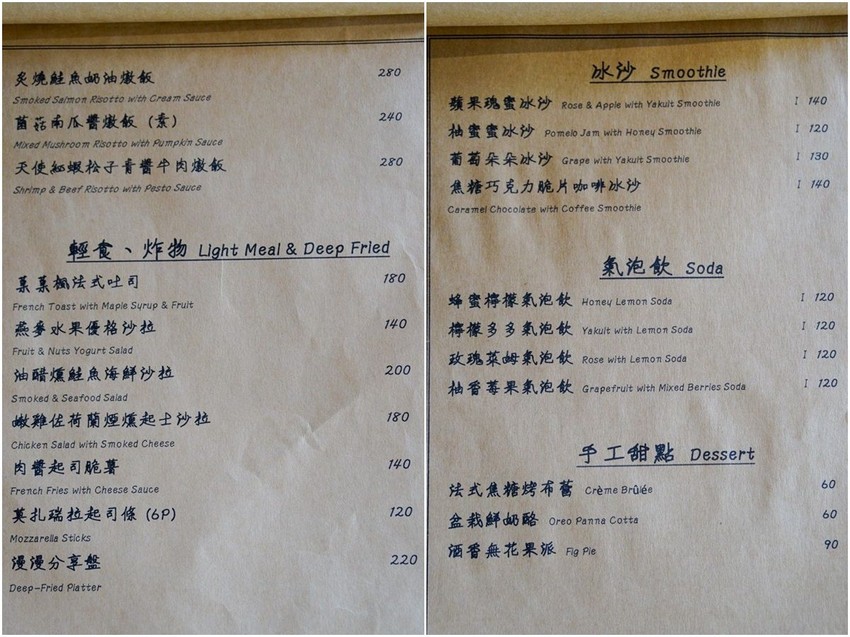 炙燒鮭魚奶油燉飯 280
Smoked Salmon Risotto with Cream Sauce
菌菇南瓜醬燉飯 (素) 240
Mixed Mushroom Risotto with Pumpkin Sauce
天使紅蝦松子青醬牛肉燉飯 280
Shrimp & Beef Risotto with Pesto Sauce
輕食、炸物 Light Meal & Deep Fried
菓菓楓法式吐司 180
French Toast with Maple Syrup & Fruit
燕麥水果優格沙拉 140
Fruit & Nuts Yogurt Salad
油醋燻鮭魚海鮮沙拉 200
Smoked & Seafood Salad
嫩雞佐荷蘭煙燻起士沙拉 180
Chicken Salad with Smoked Cheese
肉醬起司脆薯 140
French Fries with Cheese Sauce
莫扎瑞拉起司條 (6P) 120
Mozzarella Sticks
漫漫分享盤 220
Deep-Fried Platter
冰沙 Smoothie
蘋果瑰蜜冰沙 Rose & Apple with Yakult Smoothie I 140
柚蜜蜜冰沙 Pomelo Jam with Honey Smoothie I 120
葡萄朵朵冰沙 Grape with Yakult Smoothie I 130
焦糖巧克力脆片咖啡冰沙 I 140
Caramel Chocolate with Coffee Smoothie
氣泡飲 Soda
蜂蜜檸檬氣泡飲 Honey Lemon Soda I 120
檸檬多多氣泡飲 Yakult with Lemon Soda I 120
玫瑰萊姆氣泡飲 Rose with Lemon Soda I 120
柚香莓果氣泡飲 Grapefruit with Mixed Berries Soda I 120
手工甜點 Dessert
法式焦糖烤布蕾 Crème Brûlée 60
盆栽鮮奶酪 Oreo Panna Cotta 60
酒香無花果派 Fig Pie 90